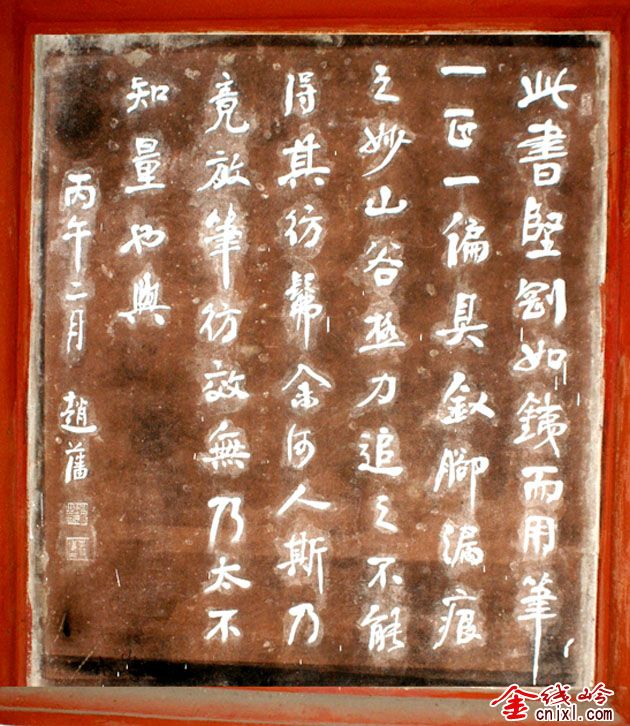 此書堅剛如鐵而用筆
一正一偏具釵腳漏痕
之妙山谷極力追之不能
得其彷彿余何人斯乃
竟放筆彷效無乃太不
知量也與
丙午二月 趙藩
金线岭
cnjxl.com